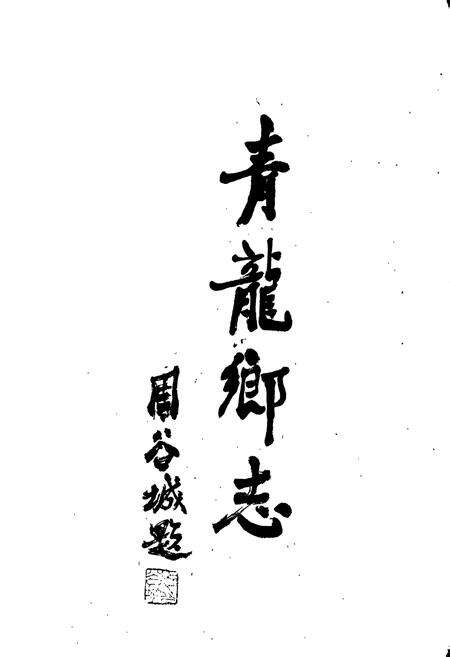 青龍鄉志
周谷城题